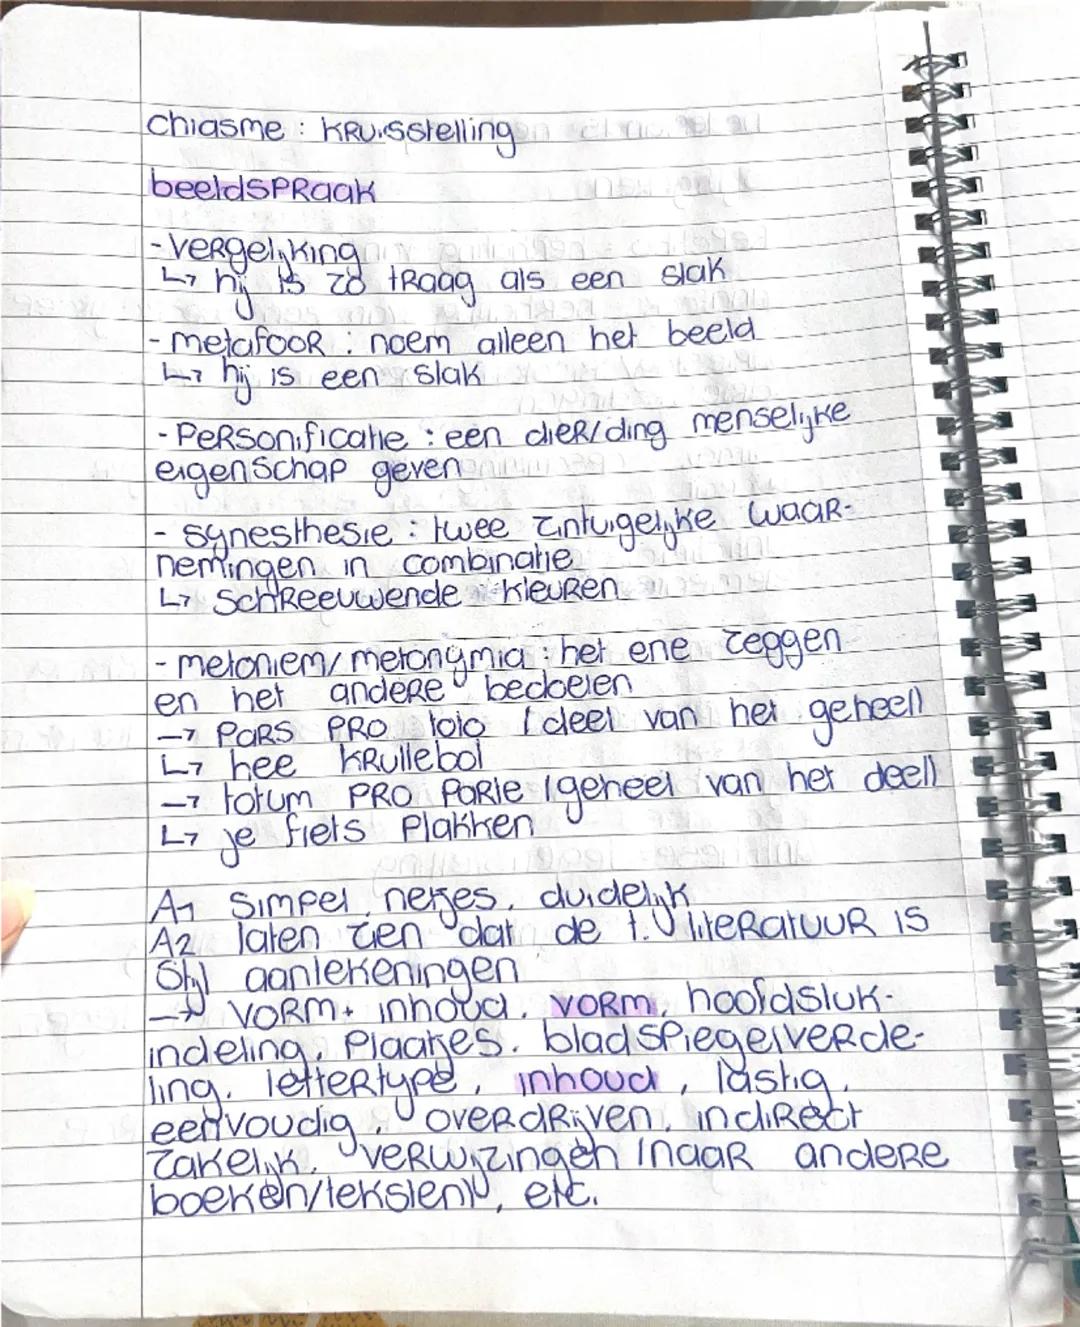 chiasme : kruisstelling
beeldspraak
- vergelijking
↳ hij is zo traag als een slak
- metafoor : noem alleen het beeld
↳ hij is een slak
- Personificatie : een dier/ding menselijke
eigenschap geven
- synesthesie : twee zintuigelijke waar-
nemingen in combinatie
↳ schreeuwende kleuren
- metoniem/metonymia : het ene zeggen
en het andere bedoelen
→ Pars pro toto (deel van het geheel)
↳ hee krullebol
→ totum pro parte (geheel van het deel)
↳ je fiets plakken
A1 simpel, netjes, duidelijk
A2 laten zien dat de t. literatuur is
Stijl aantekeningen
→ vorm + inhoud. vorm, hoofdstuk-
indeling, plaatjes, bladspiegelverde-
ling, lettertype, inhoud, lastig,
eenvoudig, overdrijven, indirect
zakelijk, verwijzingen (naar andere
boeken/teksten), etc.